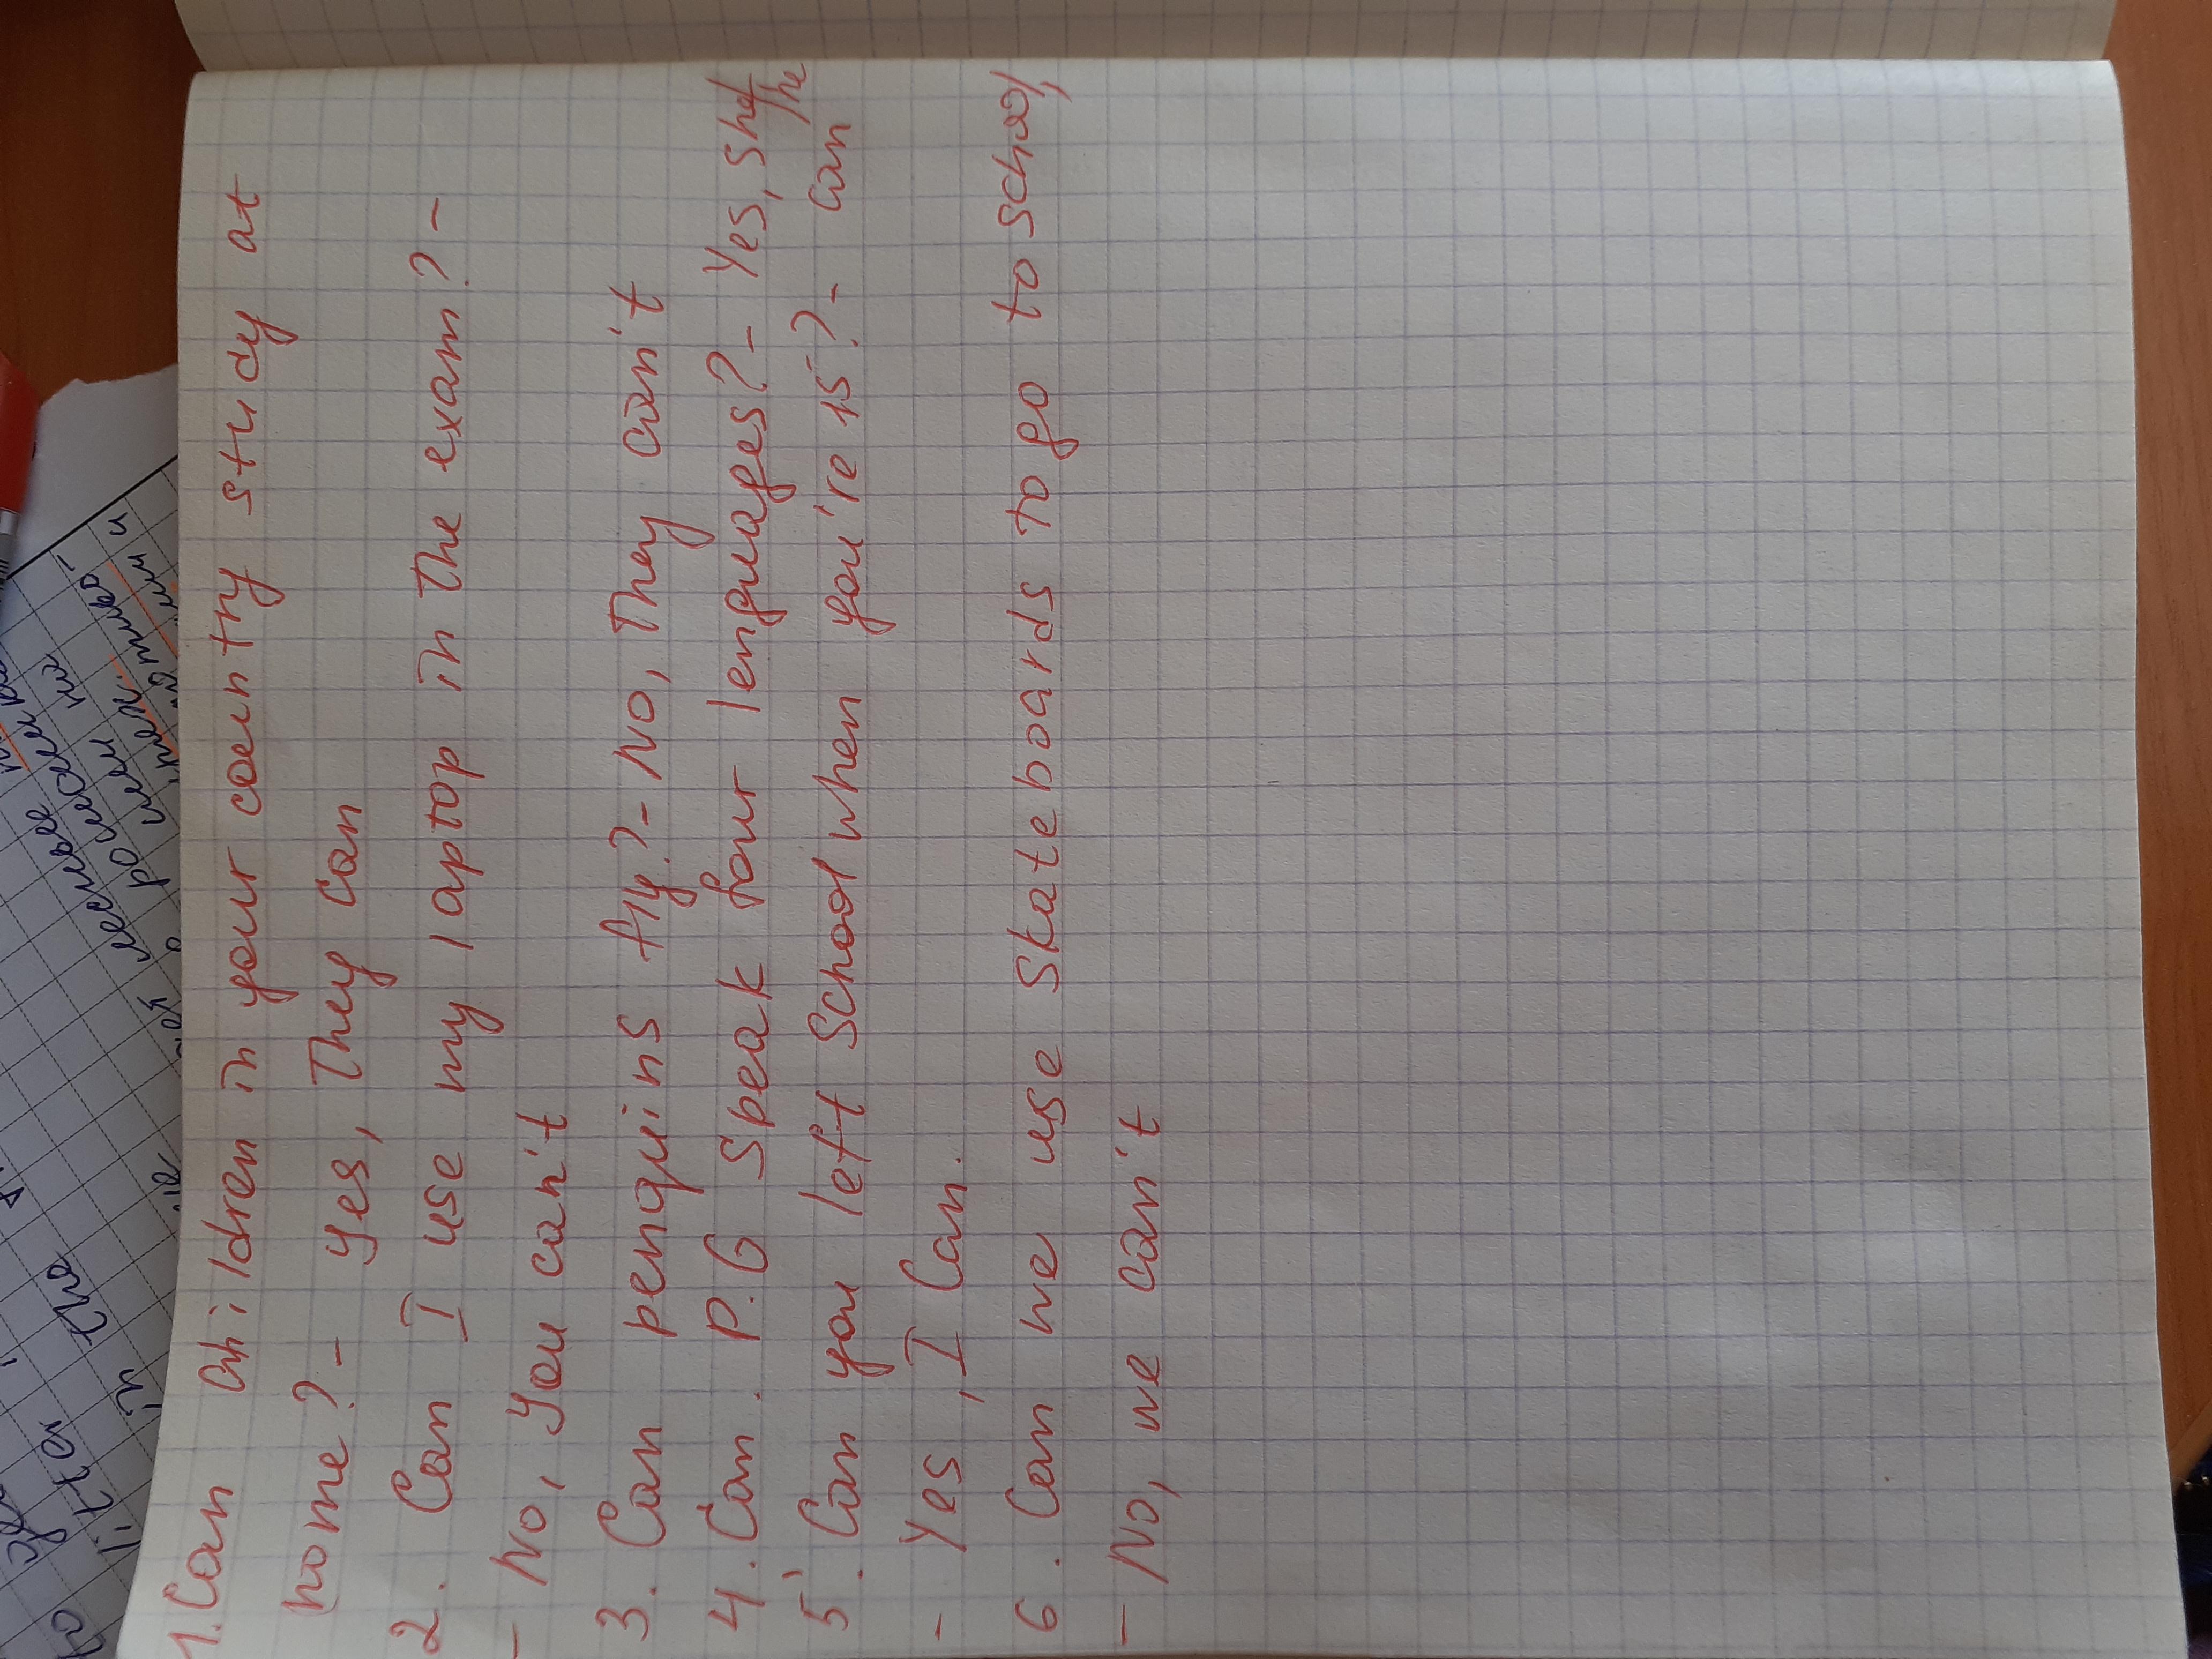 1. Can children in your country study at
home? - Yes, They can
2. Can I use my laptop in the exam? -
- No, You can't
3. Can penquins fly? - No, They can't
4. Can. P. G speak four lenguages? - Yes, she/
he
can
5. Can you left School when you're 15? -
- Yes, I Can.
6. Can we use skateboards to go to school,
- No, we can't
in the